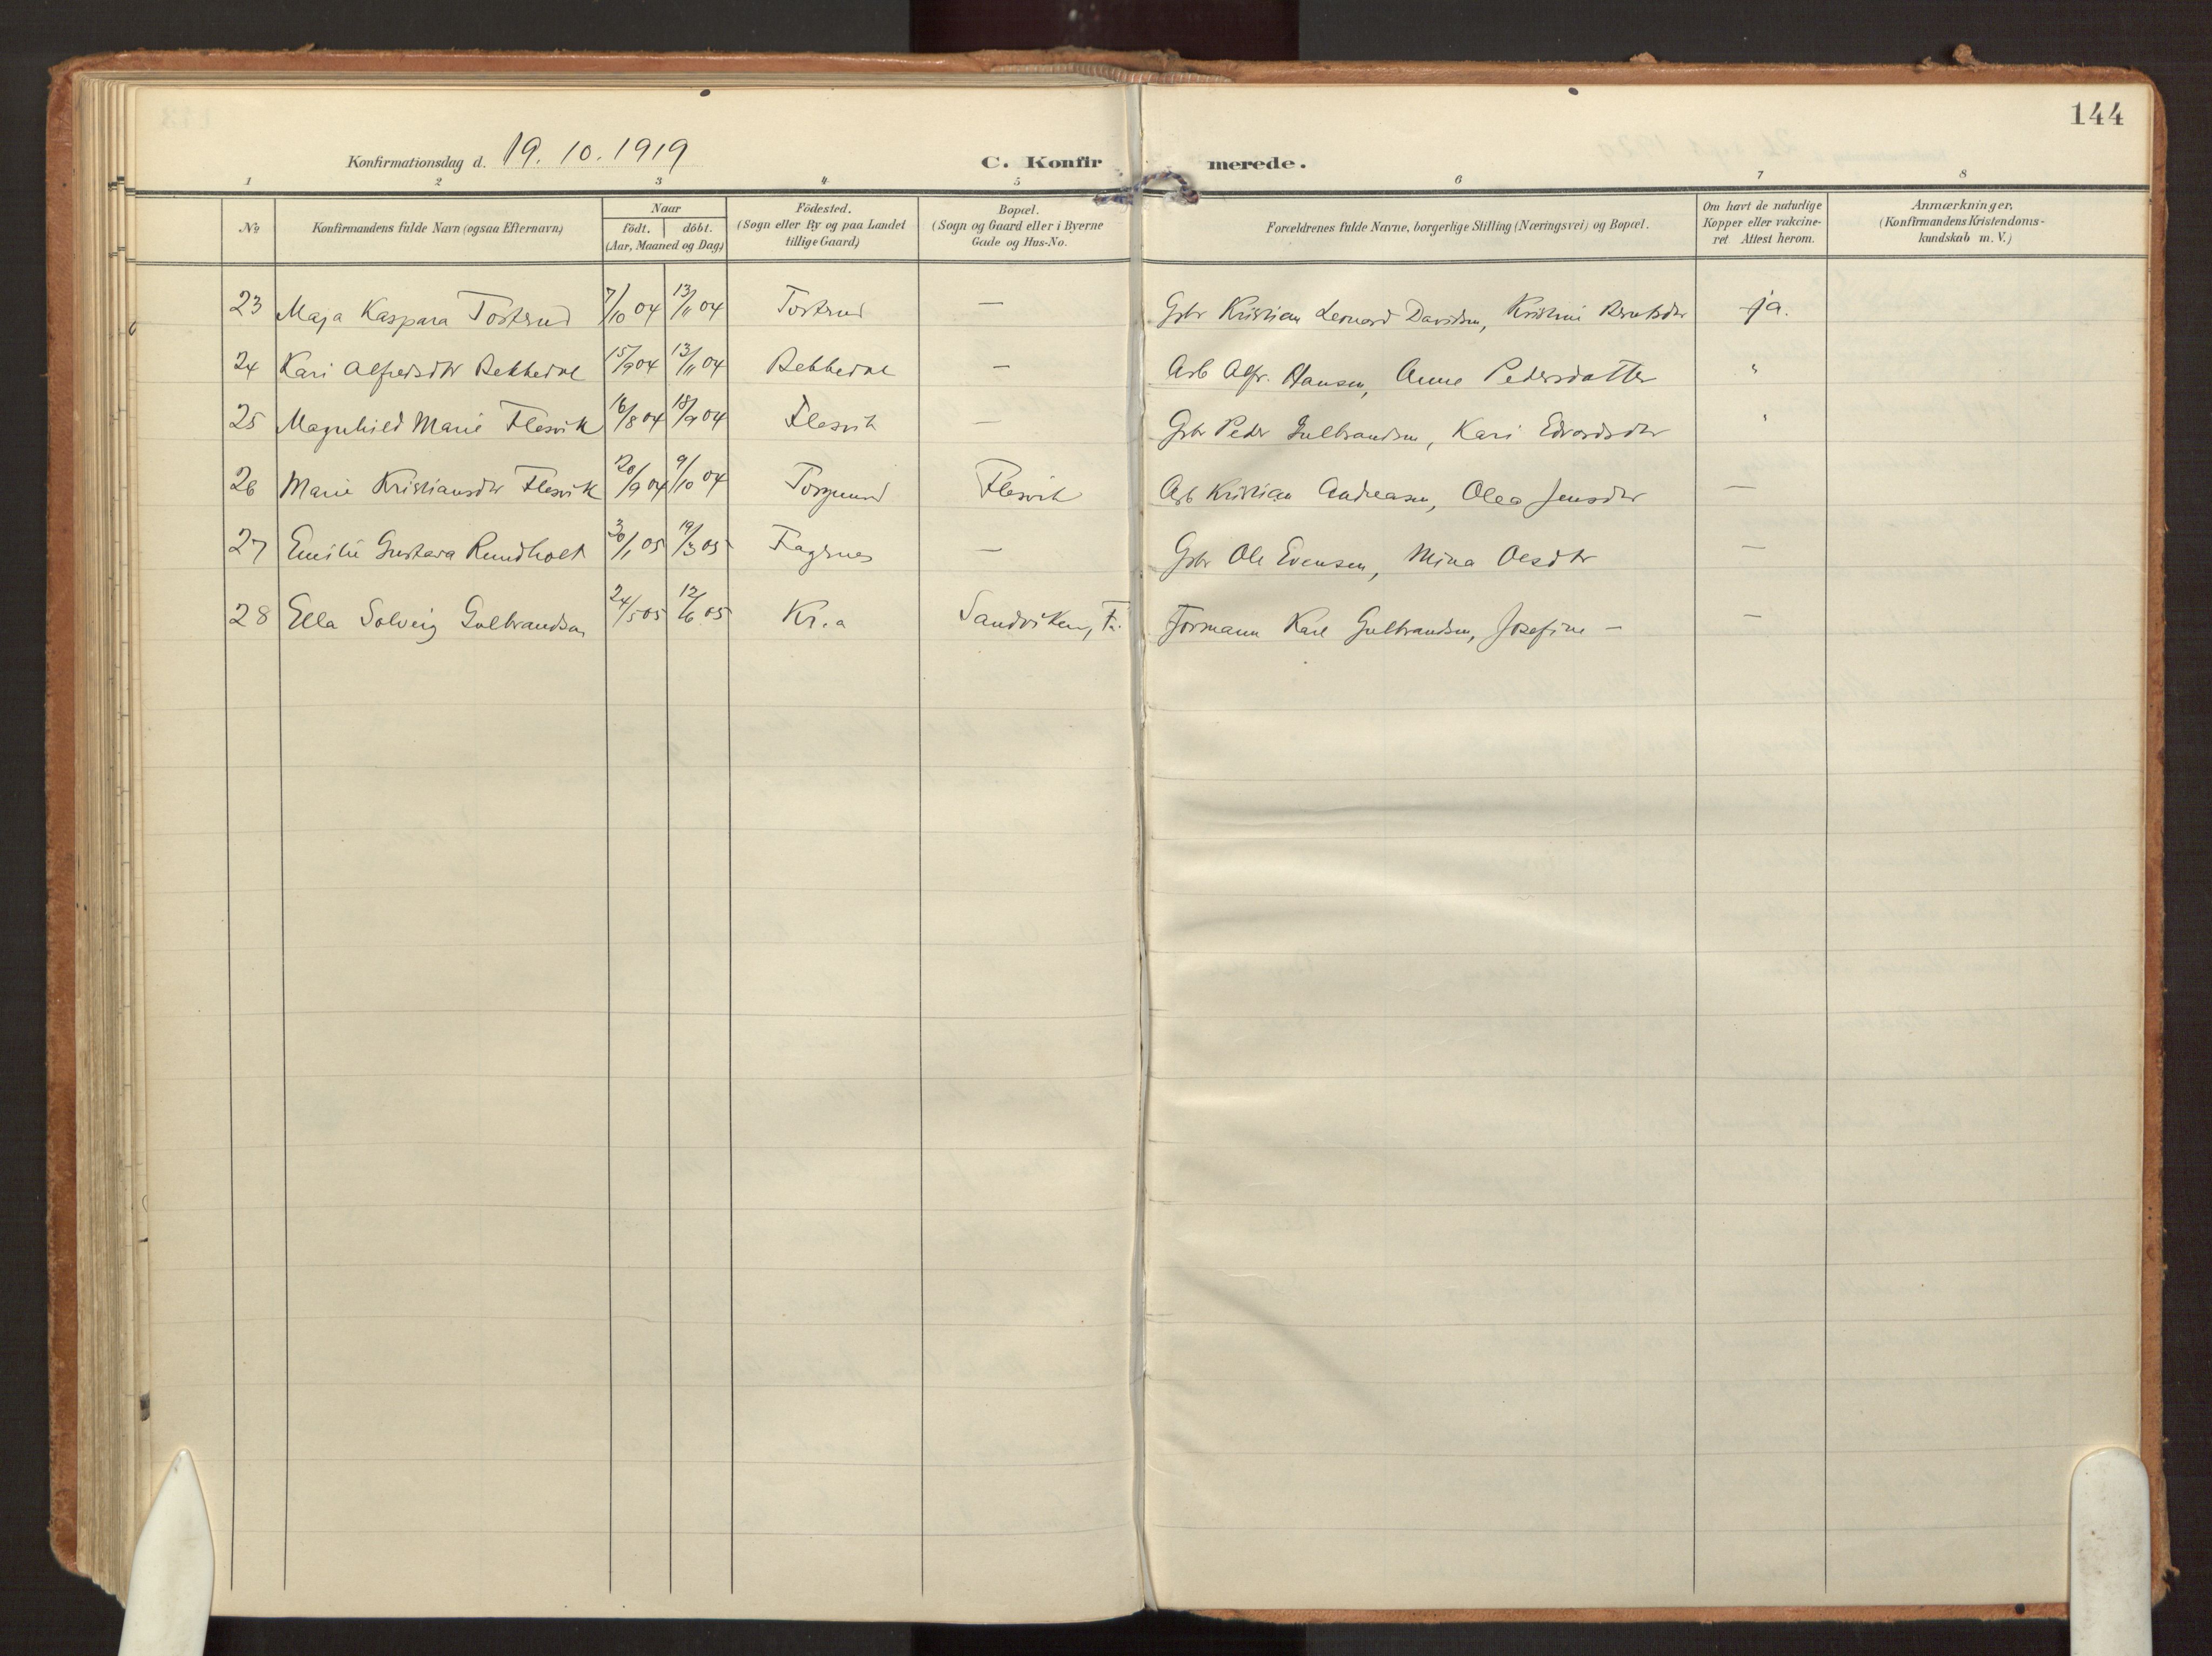 144
Konfirmationsdag d. 19. 10. 1919
C. Konfirmerede.
1 2 3 4 5 6 7 8
No
Konfirmandens fulde Navn (ogsaa Efternavn)
Naar
födt. döbt.
(Aar, Maaned og Dag)
Födested.
(Sogn eller By og paa Landet
tillige Gaard)
Bopæl.
(Sogn og Gaard eller i Byerne
Gade og Hus-No.
Forældrenes fulde Navne, borgerlige Stilling (Næringsvei) og Bopæl.
Om havt de naturlige
Kopper eller vakcine-
ret Attest herom.
Anmærkninger,
(Konfirmandens Kristendoms-
kundskab m. V.)
23 Maja Kaspara Tosterud 7/10 04 13/11 04 Tosterud — Gbr Kristian Leonard Davidsen, Kristine Berntsdtr ja.
24 Kari Alfredsdtr 15/9 04 13/11 04 — Arb Alfr. Hansen, Anne Pedersdatter "
25 Magnhild Marie Flesvik 16/8 04 18/9 04 Flesvik — Gbr Peder Gulbrandsen, Kari Edvardsdtr "
26 Marie Kristiansdtr Flesvik 20/9 04 9/10 04 Flesvik Arb Kristian Andreasen, Olea Jensdtr —
27 Emilie Gustava Rundholt 30/1 05 19/3 05 Fagernes — Gbr Ole Evensen, Mina Olesdtr —
28 Ella Solveig Gulbrandsen 24/5 05 12/6 05 Kr.a Sandviken, Formann Karl Gulbrandsen, Josefine — —